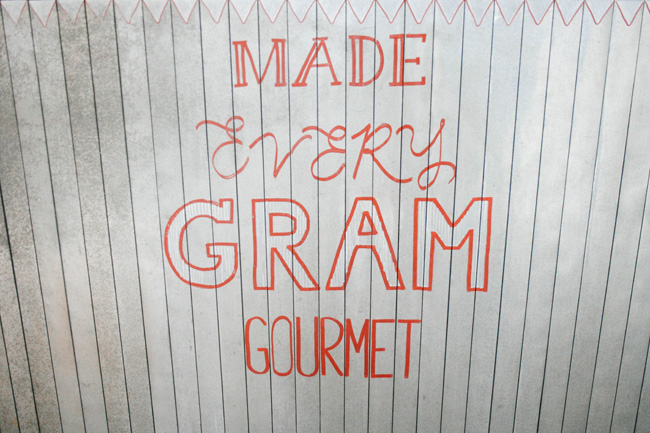 MADE
EVERY
GRAM
GOURMET